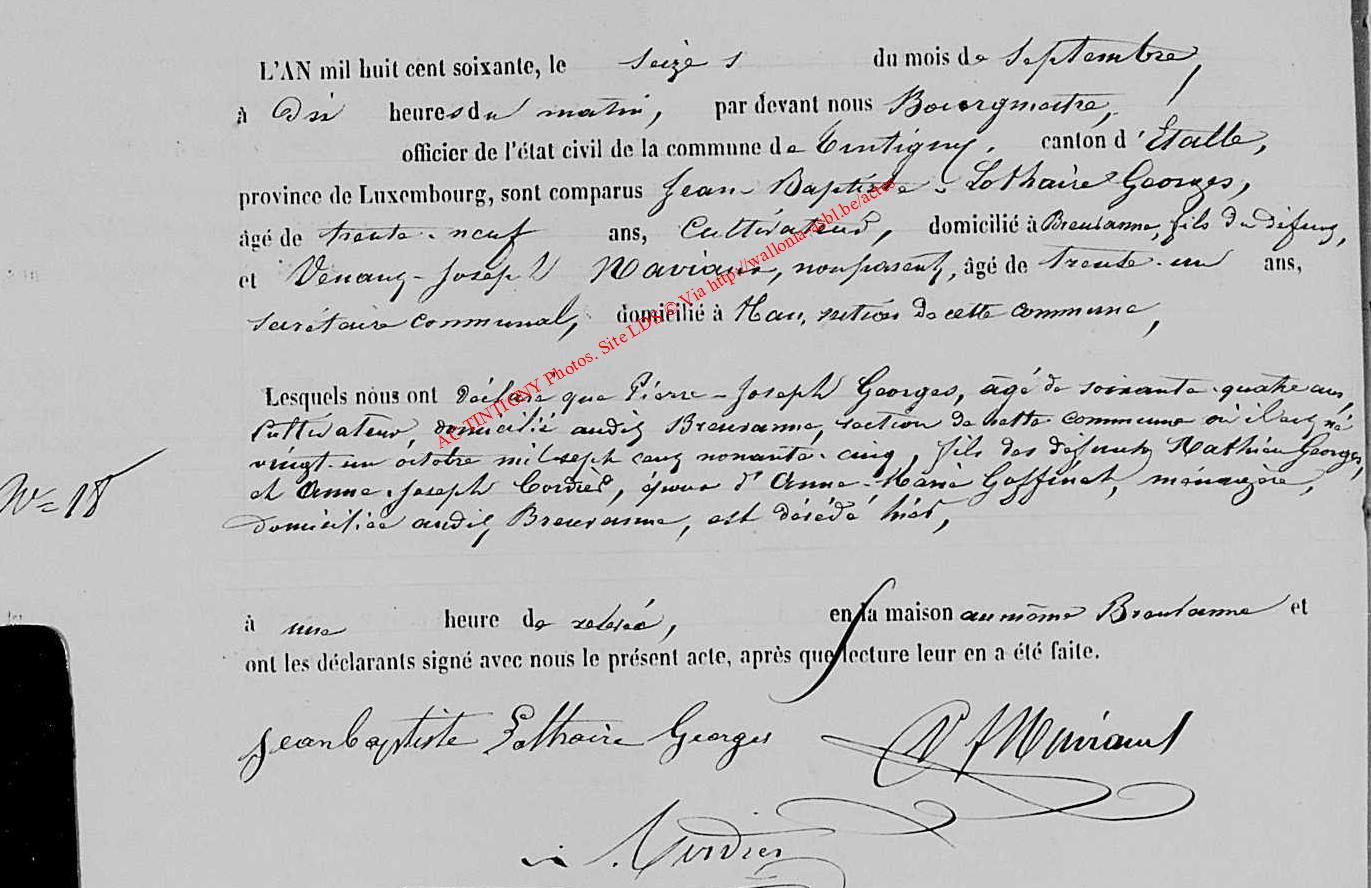 L'AN mil huit cent soixante, le seize du mois de Septembre,
à Dix heures du matin, par devant nous Bourgmestre,
officier de l'état civil de la commune de Tintigny, canton d'Etalle,
province de Luxembourg, sont comparus Jean-Baptiste-Lothaire Georges,
âgé de trente-neuf ans, Cultivateur, domicilié à Breuvanne, fils du défunt,
et Venant-Joseph non parent, âgé de Trente-un ans,
secrétaire communal, domicilié à Han, section de cette commune,
Lesquels nous ont déclaré que Pierre-Joseph Georges, âgé de soixante-quatre ans,
Cultivateur, domicilié audit Breuvanne, section de cette commune où il est né
vingt-un octobre mil sept cent nonante-cinq, fils des défunts Mathieu Georges,
et Anne-Joseph Cordier, époux d'Anne-Marie Goffinet, ménagère,
domiciliée audit Breuvanne, est décédé hier,
N= 18
à une heure de relevée, en sa maison au même Breuvanne et
ont les déclarants signé avec nous le présent acte, après que lecture leur en a été faite.
Jean baptiste Lothaire Georges
AC TINTIGNY Photos. Site LDB © Via http://wallonia-asbl.be/actes